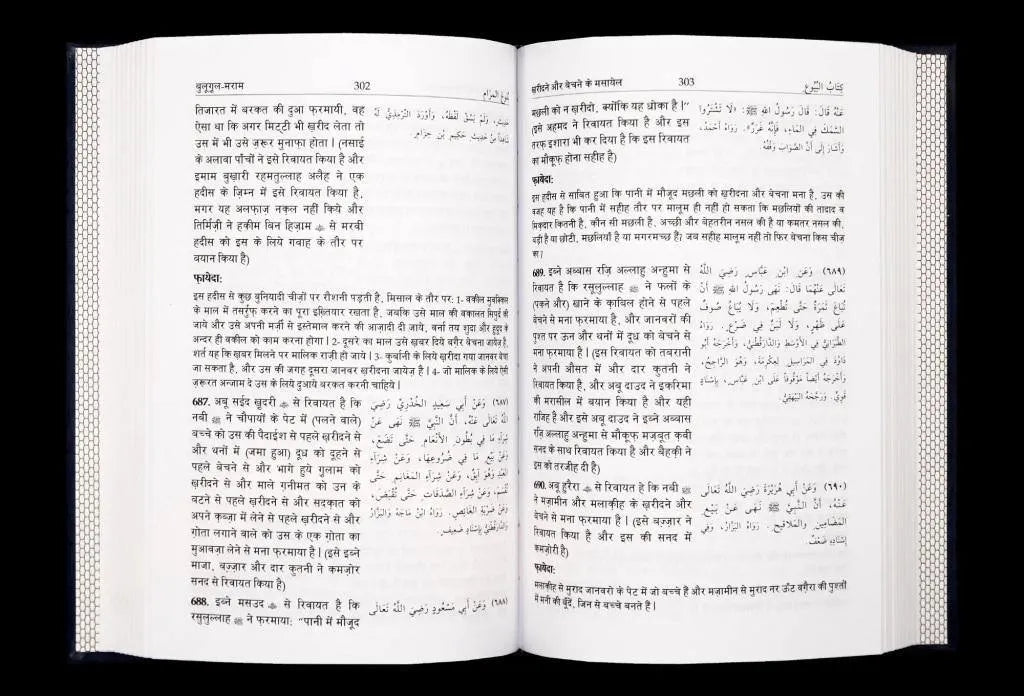 बुलूगुल-मराम 302
तिजारत में बरकत की दुआ फ़रमायी, वह
ऐसा था कि अगर मिट्टी भी ख़रीद लेता तो
उस में भी उसे ज़रूर मुनाफ़ा होता। (नसाई
के अलावा पाँचों ने इसे रिवायत किया है और
इमाम बुख़ारी रहमतुल्लाह अलैह ने एक
हदीस के ज़िम्न में इसे रिवायत किया है,
मगर यह अलफ़ाज़ नक़ल नहीं किये और
तिर्मिज़ी ने हकीम बिन हिज़ाम से मरवी
हदीस को इस के लिये गवाह के तौर पर
बयान किया है)
حَدِيثٍ، وَلَمْ يَسُقْ لَفْظَهُ، وَأَوْرَدَ التِّرْمِذِيُّ لَهُ
شَاهِداً مِنْ حَدِيثِ حَكِيمِ بْنِ حِزَامٍ.
फ़ायेदा:
इस हदीस से कुछ बुनियादी चीज़ों पर रौशनी पड़ती है, मिसाल के तौर पर: 1- वकील मुवक्किल
के माल में तसर्रुफ़ करने का पूरा इख़्तियार रखता है, जबकि उसे माल की वकालत सिपुर्द की
जाये और उसे अपनी मर्ज़ी से इस्तेमाल करने की आज़ादी दी जाये, वर्ना तय शुदा और हुदूद के
अन्दर ही वकील को काम करना होगा। 2- दूसरे का माल उसे ख़बर दिये बग़ैर बेचना जायेज़ है,
शर्त यह कि ख़बर मिलने पर मालिक राज़ी हो जाये। 3- कुर्बानी के लिये ख़रीदा गया जानवर बेचा
जा सकता है, और उस की जगह दूसरा जानवर ख़रीदना जायेज़ है। 4- जो मालिक के लिये ऐसी
ज़रूरत अन्जाम दे उस के लिये दुआये बरकत करनी चाहिये।
687. अबू सईद ख़ुदरी से रिवायत है कि
नबी ﷺ ने चौपायों के पेट में (पलने वाले)
बच्चे को उस की पैदाईश से पहले ख़रीदने से
और थनों में (जमा हुआ) दूध को दूहने से
पहले बेचने से और भागे हुये गुलाम को
ख़रीदने से और माले गनीमत को उन के
बटने से पहले ख़रीदने से और सदक़ात को
अपने कब्ज़ा में लेने से पहले ख़रीदने से और
ग़ोता लगाने वाले को उस के एक ग़ोता का
मुआवज़ा लेने से मना फ़रमाया है। (इसे इब्ने
माजा, बज़्ज़ार और दार कुतनी ने कमज़ोर
सनद से रिवायत किया है)
(٦٨٧) وَعَنْ أَبِي سَعِيدٍ الْخُدْرِيِّ رَضِيَ
اللَّهُ عَنْهُ، أَنَّ النَّبِيَّ ﷺ نَهَى عَنْ
شِرَاءِ مَا فِي بُطُونِ الأَنْعَامِ حَتَّى تَضَعَ،
وَعَنْ بَيْعِ مَا فِي ضُرُوعِهَا، وَعَنْ شِرَاءِ
الْعَبْدِ وَهُوَ آبِقٌ، وَعَنْ شِرَاءِ الْمَغَانِمِ حَتَّى
تُقْسَمَ، وَعَنْ شِرَاءِ الصَّدَقَاتِ حَتَّى تُقْبَضَ،
وَعَنْ ضَرْبَةِ الْغَائِصِ. رَوَاهُ ابْنُ مَاجَهْ وَالْبَزَّارُ
وَالدَّارَقُطْنِيُّ بِإِسْنَادٍ ضَعِيفٍ.
688. इब्ने मसउद से रिवायत है कि
रसूलुल्लाह ﷺ ने फ़रमाया: “पानी में मौजूद
(٦٨٨) وَعَنْ أَبِي مَسْعُودٍ رَضِيَ اللَّهُ تَعَالَى
ख़रीदने और बेचने के मसायेल 303 كِتَابُ الْبُيُوعِ
मछली को न ख़रीदो, क्योंकि यह धोका है।”
(इसे अहमद ने रिवायत किया है और इस
तरफ़ इशारा भी कर दिया है कि इस रिवायत
का मौक़ूफ़ होना सहीह है)
عَنْهُ قَالَ: قَالَ رَسُولُ اللَّهِ ﷺ: «لَا تَشْتَرُوا
السَّمَكَ فِي الْمَاءِ، فَإِنَّهُ غَرَرٌ». رَوَاهُ أَحْمَدُ،
وَأَشَارَ إِلَى أَنَّ الصَّوَابَ وَقْفُهُ
फ़ायेदा:
इस हदीस से साबित हुआ कि पानी में मौजूद मछली को ख़रीदना और बेचना मना है, उस की
वजह यह है कि पानी में सहीह तौर पर मालूम ही नहीं हो सकता कि मछलियों की तादाद व
मिक़दार कितनी है, कौन सी मछली है, अच्छी और बेहतरीन नसल की है या कमतर नसल की,
बड़ी है या छोटी, मछलियाँ है या मगरमच्छ हैं? जब सहीह मालूम नहीं तो फिर बेचना किस चीज़
का?
689. इब्ने अब्बास रज़ि अल्लाहु अन्हुमा से
रिवायत है कि रसूलुल्लाह ﷺ ने फलों के
(पकने और) खाने के काबिल होने से पहले
बेचने से मना फ़रमाया है, और जानवरों की
पुश्त पर ऊन और थनों में दूध को बेचने से
मना फ़रमाया है। (इस रिवायत को तबरानी
ने अपनी औसत में और दार कुतनी ने
रिवायत किया है, और अबू दाउद ने इकरिमा
की मरासील में बयान किया है और यही
राजिह है और इसे अबू दाउद ने इब्ने अब्बास
रज़ि अल्लाहु अन्हुमा से मौक़ूफ़ मज़बूत कवी
सनद के साथ रिवायत किया है और बैहक़ी ने
इस को तरजीह दी है)
(٦٨٩) وَعَنِ ابْنِ عَبَّاسٍ رَضِيَ اللَّهُ
تَعَالَى عَنْهُمَا قَالَ: نَهَى رَسُولُ اللَّهِ ﷺ أَنْ
تُبَاعَ ثَمَرَةٌ حَتَّى تُطْعِمَ، وَلَا يُبَاعُ صُوفٌ
عَلَى ظَهْرٍ، وَلَا لَبَنٌ فِي ضَرْعٍ. رَوَاهُ
الطَّبَرَانِيُّ فِي الأَوْسَطِ وَالدَّارَقُطْنِيُّ، وَأَخْرَجَهُ أَبُو
دَاوُدَ فِي الْمَرَاسِيلِ لِعِكْرِمَةَ، وَهُوَ الرَّاجِحُ،
وَأَخْرَجَهُ أَيْضاً مَوْقُوفاً عَلَى ابْنِ عَبَّاسٍ، بِإِسْنَادٍ
قَوِيٍّ. وَرَجَّحَهُ الْبَيْهَقِيُّ
690. अबू हुरैरा से रिवायत है कि नबी ﷺ
ने मज़ामीन और मलाक़ीह के ख़रीदने और
बेचने से मना फ़रमाया है। (इसे बज़्ज़ार ने
रिवायत किया है और इस की सनद में
कमज़ोरी है)
(٦٩٠) وَعَنْ أَبِي هُرَيْرَةَ رَضِيَ اللَّهُ تَعَالَى
عَنْهُ، أَنَّ النَّبِيَّ ﷺ نَهَى عَنْ بَيْعِ
الْمَضَامِينِ وَالْمَلَاقِيحِ. رَوَاهُ الْبَزَّارُ، وَفِي
إِسْنَادِهِ ضَعْفٌ
फ़ायेदा:
मलाक़ीह से मुराद जानवरों के पेट में जो बच्चे हैं और मज़ामीन से मुराद नर ऊँट वग़ैरा की पुश्तों
में मनी की बूँदें, जिन से बच्चे बनते हैं।